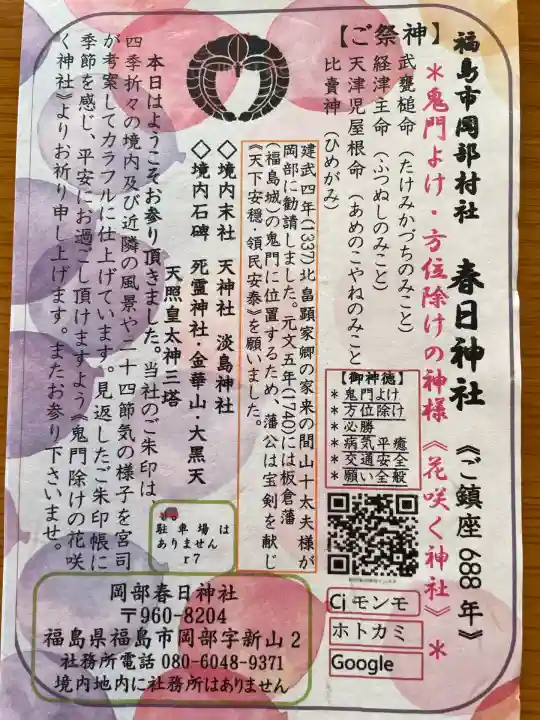 福島市岡部村社 春日神社 《ご鎮座688年》
＊鬼門よけ・方位除けの神様《花咲く神社》＊
【ご祭神】
武甕槌命（たけみかづちのみこと）
経津主命（ふつぬしのみこと）
天津児屋根命（あめのこやねのみこと）
比賣神（ひめがみ）
【御神徳】
＊鬼門よけ
＊方位除け
＊必勝
＊病気平癒
＊交通安全
＊願い全般
建武四年(1337)北畠顕家卿の家来の間山十太夫様が
岡部に勧請しました。元文五年(1740)には板倉藩
(福島城)の鬼門に位置するため、藩公は宝剣を献じ
《天下安穏・領民安泰》を願いました。
◇境内末社 天神社 淡島神社
◇境内石碑 死霊神社・金華山・大黒天
天照皇太神三塔
本日はようこそお参り頂きました。当社のご朱印は、
四季折々の境内及び近隣の風景や二十四節気の様子を宮司
が考案してカラフルに仕上げています。見返したご朱印帳に
季節を感じ、平安にお過ごし頂けますよう《鬼門除けの花咲
く神社》よりお祈り申し上げます。またお参り下さいませ。
駐車場は
ありません
r7
Ciモンモ
ホトカミ
Google
岡部春日神社
〒960-8204
福島県福島市岡部字新山2
社務所電話 080-6048-9371
境内地内に社務所はありません